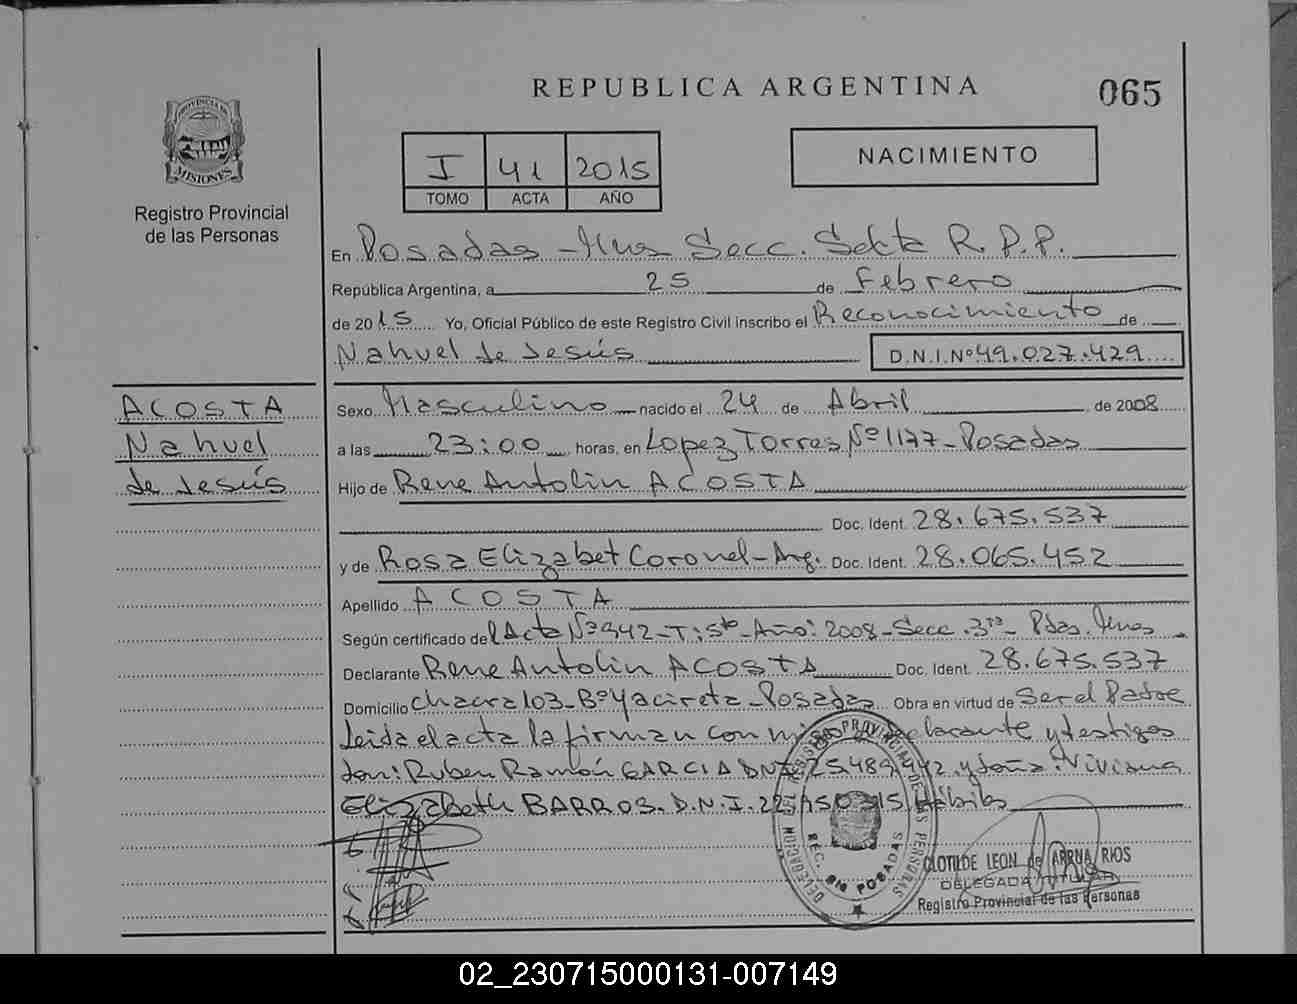 REPUBLICA ARGENTINA
065
PROVINCIA DE
MISIONES
Registro Provincial
de las Personas
I 41 2015
TOMO ACTA AÑO
NACIMIENTO
En Posadas - Mnes Secc. Sexta R.P.P.
República Argentina, a 25 de Febrero
de 2015 Yo, Oficial Público de este Registro Civil inscribo el Reconocimiento de
Nahuel de Jesús D.N.I.Nº 49.027.429
ACOSTA
Nahuel
de Jesús
Sexo Masculino nacido el 24 de Abril de 2008
a las 23:00 horas, en Lopez Torres Nº 1177 - Posadas
Hijo de Rene Antolin ACOSTA
Doc. Ident. 28.675.537
y de Rosa Elizabet Coronel - Arg. Doc. Ident. 28.065.452
Apellido ACOSTA
Según certificado del Acta Nº 942 - T: 5to - Año: 2008 - Secc. 3ra - Pdas. Mnes
Declarante Rene Antolin ACOSTA Doc. Ident. 28.675.537
Domicilio Chacra 103 - Bº Yacireta - Posadas Obra en virtud de Ser el Padre
Leida el acta la firman con declarante y testigos
don: Ruben Ramón GARCIA DNI 25.489. y doña: Viviana
Elizabeth BARROS. D.N.I. 22. Hábiles
REGISTRO PROVINCIAL DE LAS PERSONAS
DELEGACION
SEC. 6ta POSADAS
CLOTILDE LEON de ARRUA RIOS
DELEGADA TITULAR
Registro Provincial de las Personas
02_230715000131-007149